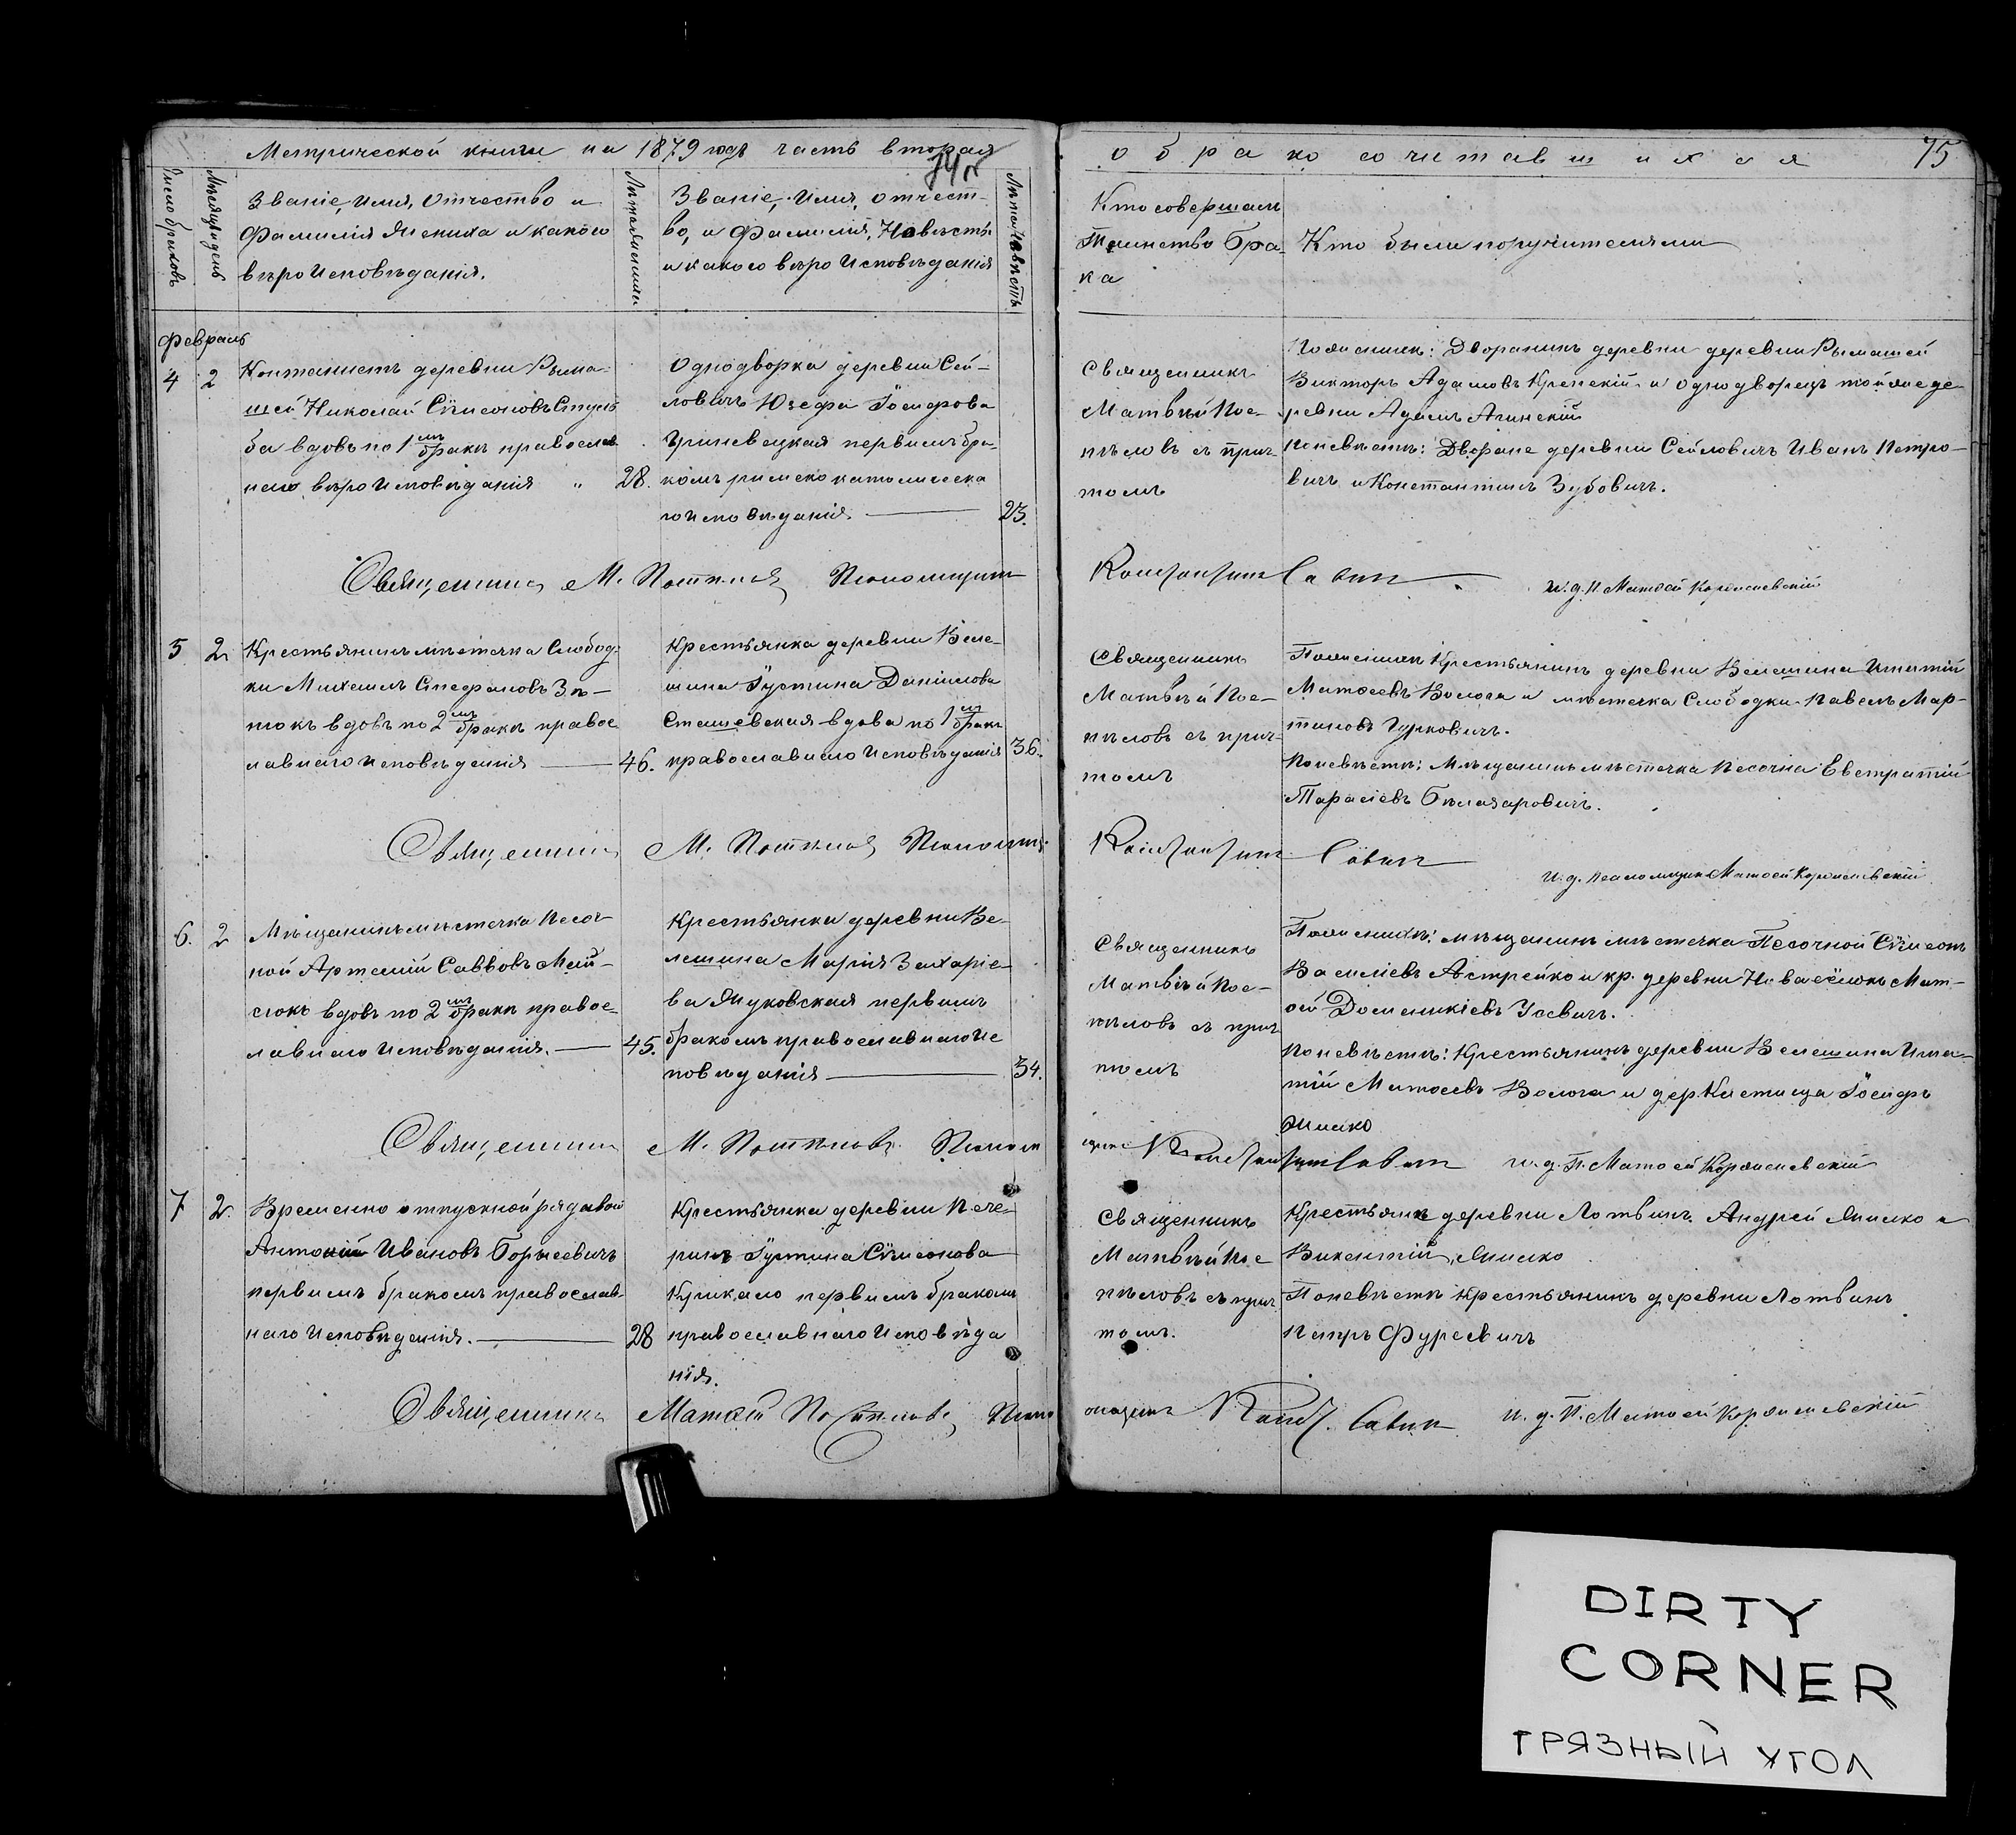 Метрической книги на 1879 годъ часть вторая
74
о бракосочитавшихся
75
Число браковъ
Мѣсяцъ и день
Званіе, имя, отчество и
фамилія жениха и какого
вѣроисповѣданія.
Званіе, имя, отчест-
во, и фамилія, Невѣсты
и какого вѣроисповѣданія
Лѣта невѣсты
Кто совершалъ
Таинство Бра-
ка
Кто были поручителями
Февраль
4
2
деревни Рыма-
шей Николай Сѵмеоновъ
ба вдовъ по 1 мъ бракѣ православ
наго вѣроисповѣданія
28.
Однодворка деревни Сей-
ловичъ Юзефа Іосифова
Гриневецкая первымъ бра-
комъ римскокатолическа
го исповѣданія
23.
Священникъ
Матвѣй Пос-
пѣловъ съ прич-
томъ
По женихѣ: Дворянинъ деревни деревни Рымашей
Викторъ Адамовъ и однодворецъ той же де
ревни Адамъ
По невѣстѣ: Дворяне деревни Сейловичъ Иванъ Петро-
вичъ и Константинъ Зубовичъ.
Священникъ М. Поспѣловъ Псаломщикъ
Константинъ Савич
и. д. п. Матѳей
5
2
Крестьянинъ мѣстечка Слобод-
ки Михаилъ Стефановъ Зѣ-
токъ вдовъ по 2 мъ бракѣ правос
лавнаго исповѣданія
46.
Крестьянка деревни Веле-
шина Іустина Даніилова
Сташевская вдова по 1 мъ бракѣ
православнаго исповѣданія
36.
Священникъ
Матвѣй Пос-
пѣловъ съ прич-
томъ
По женихѣ Крестьянинъ деревни Велешина Игнатій
Матѳеевъ Волога и мѣстечка Слободки Павелъ Мар-
тиновъ Гурковичъ.
По невѣстѣ: Мѣщанинъ мѣстечка Песочна Евстратій
Тарасіевъ
Священникъ М. Поспѣловъ
Константинъ Савич
и. д. псаломщика Матѳей
6.
2
Мѣщанинъ мѣстечка Песоч-
ной Артемій Саввовъ Май-
сюкъ вдовъ по 2 мъ бракѣ правос-
лавнаго исповѣданія.
45.
Крестьянка деревни Ве-
лешина Марія Захаріе-
ва Жуковская первымъ
бракомъ православнаго ис
повѣданія
34.
Священникъ
Матвѣй Пос-
пѣловъ съ прич
томъ
По женихѣ: мѣщанинъ мѣстечка Песочной Сѵмеонъ
Василіевъ Астрейко и кр. деревни Матѳ-
ей Доминикіевъ
По невѣстѣ: Крестьянинъ деревни Велешина Игна-
тій Матѳеевъ Волога и дер. Іосифъ
Жилко
Священникъ М. Поспѣловъ
Константинъ Савич и. д. п. Матѳей
7
2.
Временно отпускной рядовой
Антоній Ивановъ Борисевичъ
первымъ бракомъ православ-
наго исповѣданія.
28
Крестьянка деревни Пече-
ринъ Іустина Сѵмеонова
первымъ бракомъ
православнаго исповѣда
нія.
Священникъ
Матвѣй Пос
пѣловъ съ прич
томъ.
Крестьяне деревни Лотвинъ. Андрей Жилко и
Викентій Жилко
По невѣстѣ Крестьянинъ деревни Лотвинъ
Петръ Фурсевичъ
Священникъ Матѳей Поспѣловъ
Конст. Савич и. д. П. Матѳей
DIRTY
CORNER
ГРЯЗНЫЙ УГОЛ